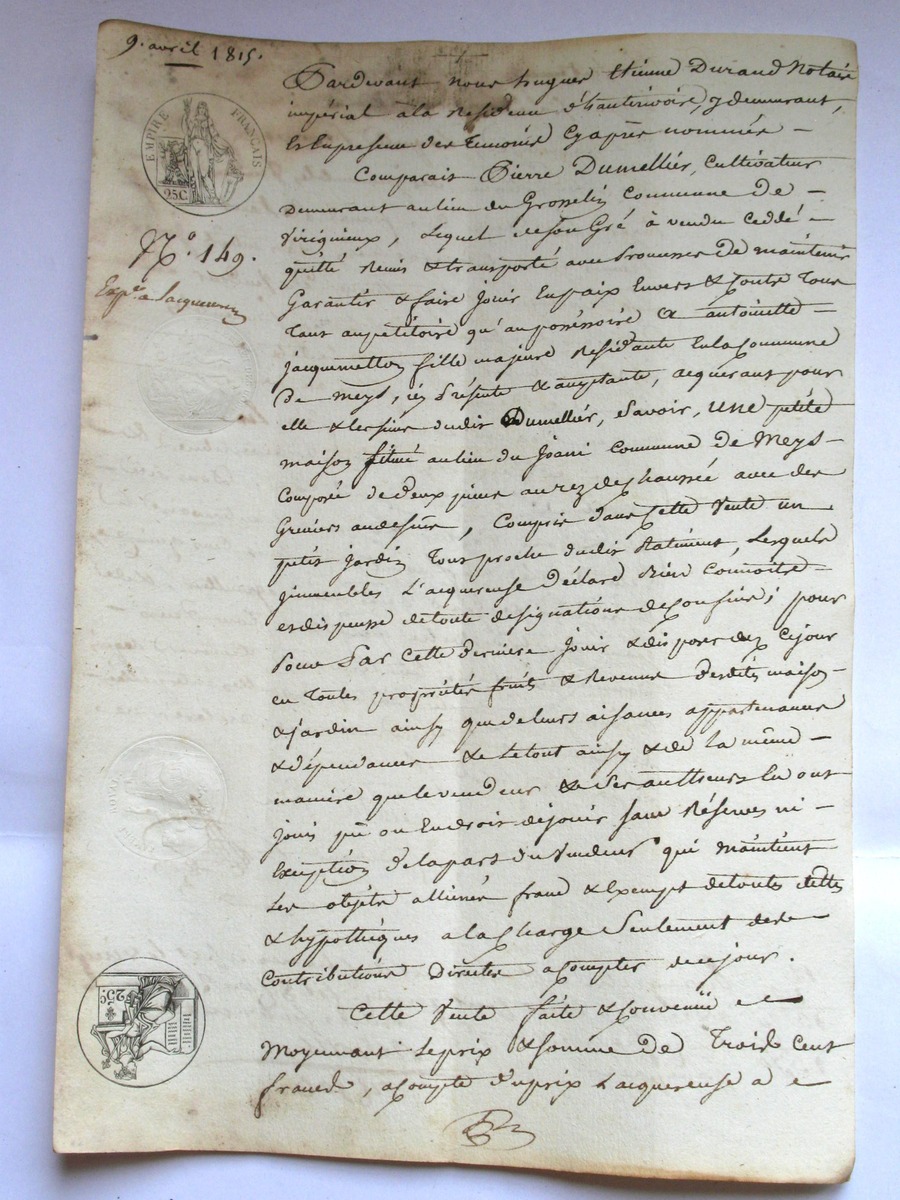 9. avril 1815.
EMPIRE FRANÇAIS
25C
N.º 149.
Expé. a Jacquemetton
Pardevant nous hugues Etienne Durand Notaire
impérial à la Residence d'hauterivoire, y demeurant,
Et En presence des Temoins Cy après nommés —
Comparait Pierre Dumellier, Cultivateur
Demeurant au lieu du Grosselin Commune de —
Viriguieux, Lequel de son Gré à vendu Ceddé —
quitté Remis & transporté avec Promesses De maintenir
Garantir & faire jouir En paix Envers & Contre Tous
Tant au petitoire qu'au posséssoire a antoinette —
jacquemetton fille majeure Residante En la Commune
De meys, icy Présente & acceptante, acquerant pour
elle & les siens dudit Dumellier, Savoir, une petite
maison située au lieu du Joani Commune De Meys —
Composée de deux pieces au rez de Chaussée avec des
Greniers au dessus, Compris dans Cette Vente un
petit jardin Tout proche dudit Batiment, Lesquels
jmmeubles L'acquereuse Déclare Bien Connoitre —
et dispense de toute designations & Confins; pour
Pour Par Cette derniere Jouir & disposer dez Cejour
en Toutes propriétés fruits & Revenus Desdits maison —
& jardin ainsy que de leurs aisances appartenances
& dépendances & le tout ainsy & de la même —
maniere que le vendeur & Ses autheurs En ont
Jouis pû ou En droit de jouir Sans Réserves ni —
Exception De la part du Vendeur qui maintient
Les objets alliénés franc & Exempt de toutes dettes
& hypothèques a la Charge Seulement des —
Contributions Directes a Compter de ce jour.
25C
Cette Vente faite & Convenüe —
Moyennant Le prix & somme De Trois Cent
francs, a Compte du prix L'acquereuse a